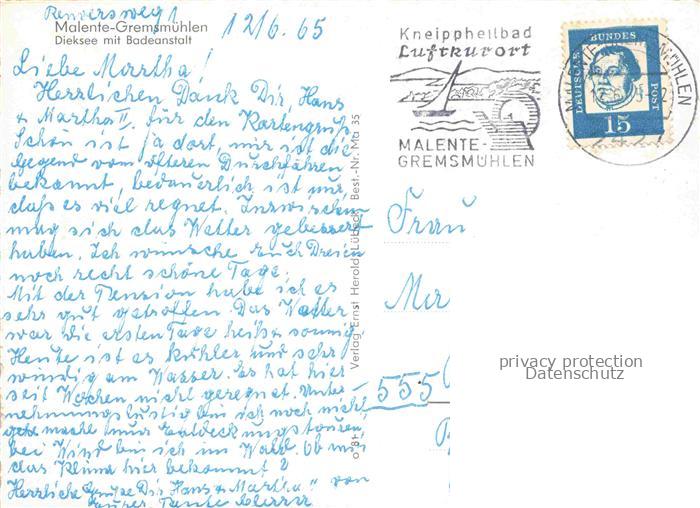 12/6.65
Malente-Gremsmühlen
Dieksee mit Badeanstalt
Liebe Martha!
Herzlichen Dank Dir, Hans
+ Martha II. für den Kartengruß.
Schön ist ja dort, mir ist die
Gegend vom öfteren Durchfahren
bekannt, bedauerlich ist nur,
daß es viel regnet. Inzwischen
mag sich das Wetter gebessert
haben. Ich wünsche Euch Dreien
noch recht schöne Tage.
Mit der Pension habe ich es
sehr gut getroffen. Das Wetter
war die ersten Tage heiß + sonnig.
Heute ist es kühler und sehr
windig am Wasser. Es hat hier
seit Wochen nicht geregnet. Unter-
nehmungslustig bin ich noch nicht
mache nur Entdeckungstouren,
bei Wind bin ich im Wald. Ob mir
das Klima hier bekommt?
Herzliche Grüße Dir Hans + Martha II von
Eurer Tante
Verlag Ernst Herold, Lübeck Best.-Nr. Ma 35
Kneippheilbad
Luftkurort
MALENTE-
GREMSMÜHLEN
DEUTSCHE BUNDESPOST
15
Frau
555
privacy protection
Datenschutz